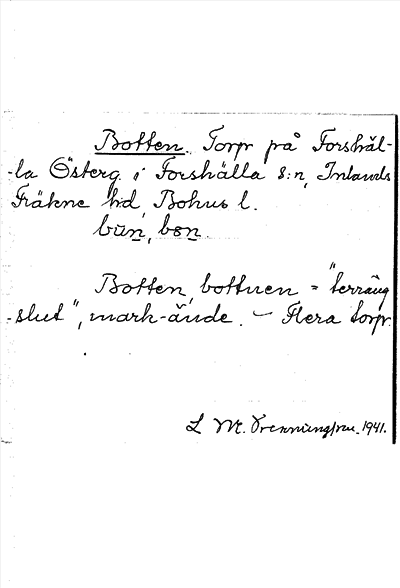 Botten. Torp på Forshäl-
-la Österg. i Forshälla s:n, Inlands
Fräkne hd, Bohus l.
Botten, bottnen = "terräng
-slut", mark-ände. – Flera torp.
L M. 1941.